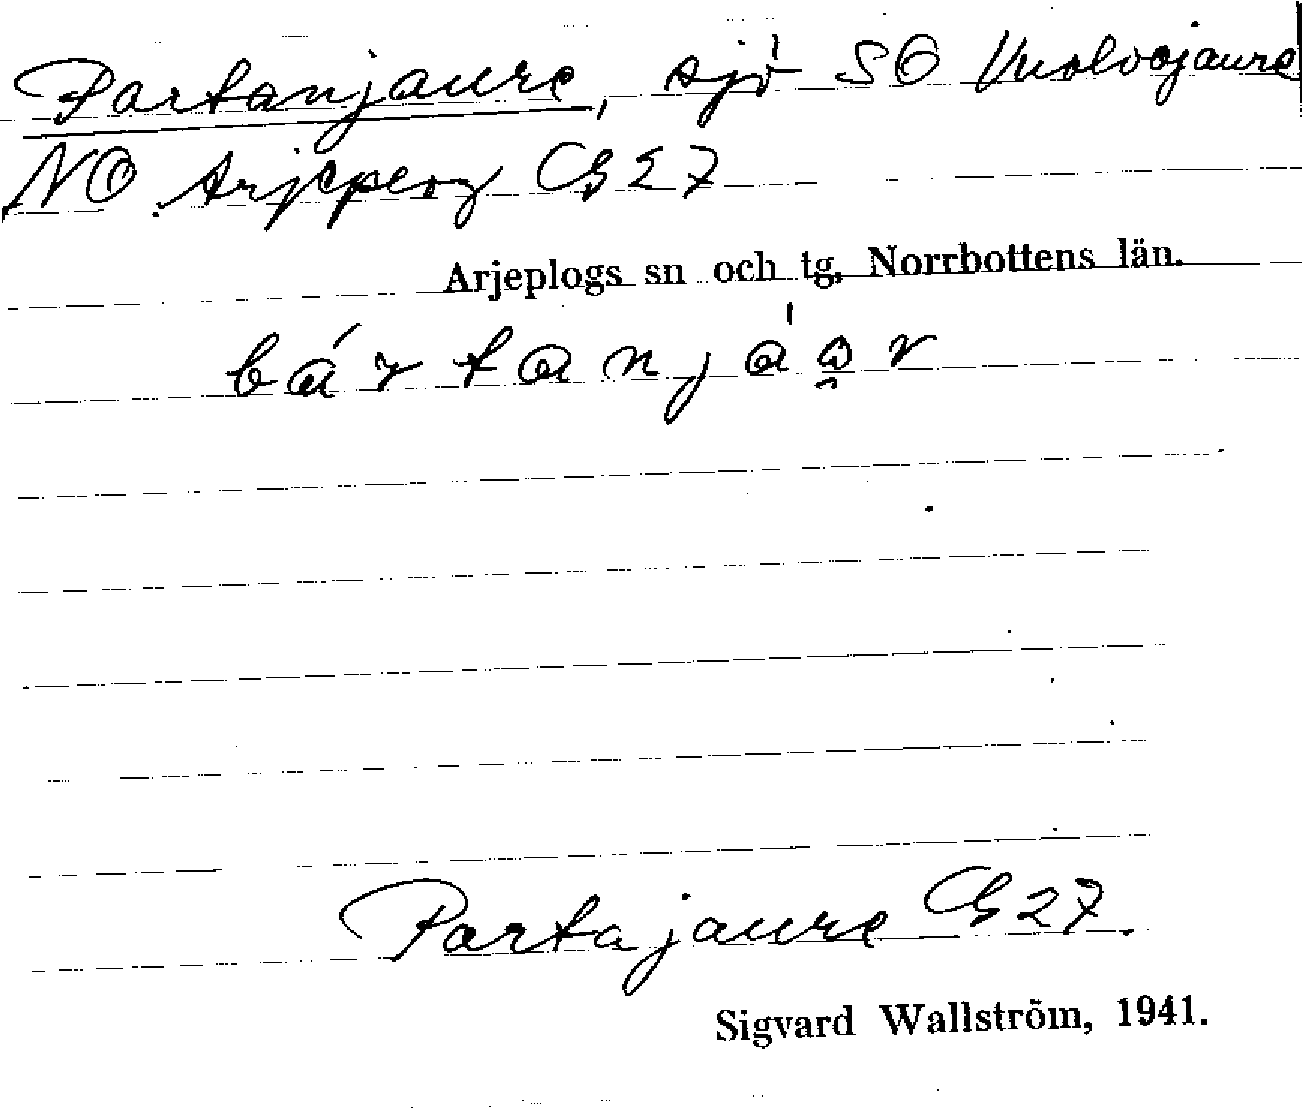 Partanjaure, sjö SO Vuolvojaure
NO Arjeplog G27
Arjeplogs sn och tg, Norrbottens län.
bártanjáọr
Partajaure G27.
Sigvard Wallström, 1941.